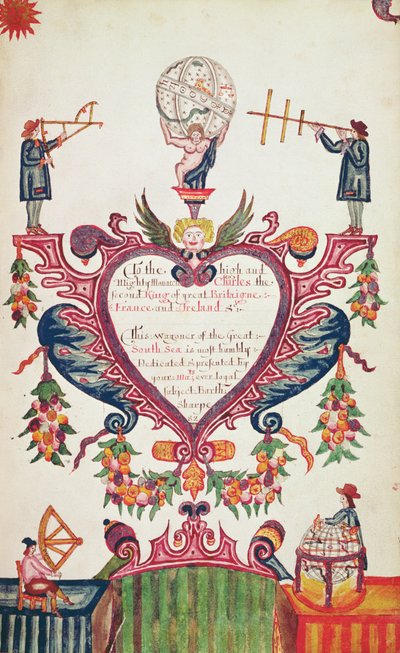 To the high and
Mighty Monarch Charles the
second King of great Britaigne
France and Ireland &c
This wagoner of the Great
South Sea is most humbly
Dedicated & presented by
your Ma:ts ever loyal
subject Barth:
Sharpe